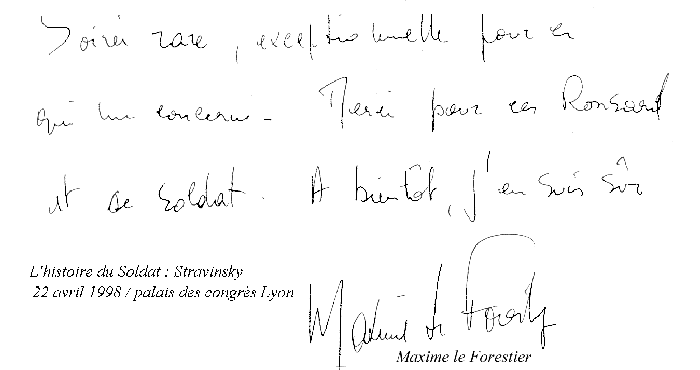 Soirée rare, exceptionnelle pour ce
qui me concerne - Merci pour ces Ronsard
et ce soldat. A bientôt, j'en suis sûr
L'histoire du Soldat : Stravinsky
22 avril 1998 / palais des congrès Lyon
Maxime le Forestier
Maxime le Forestier